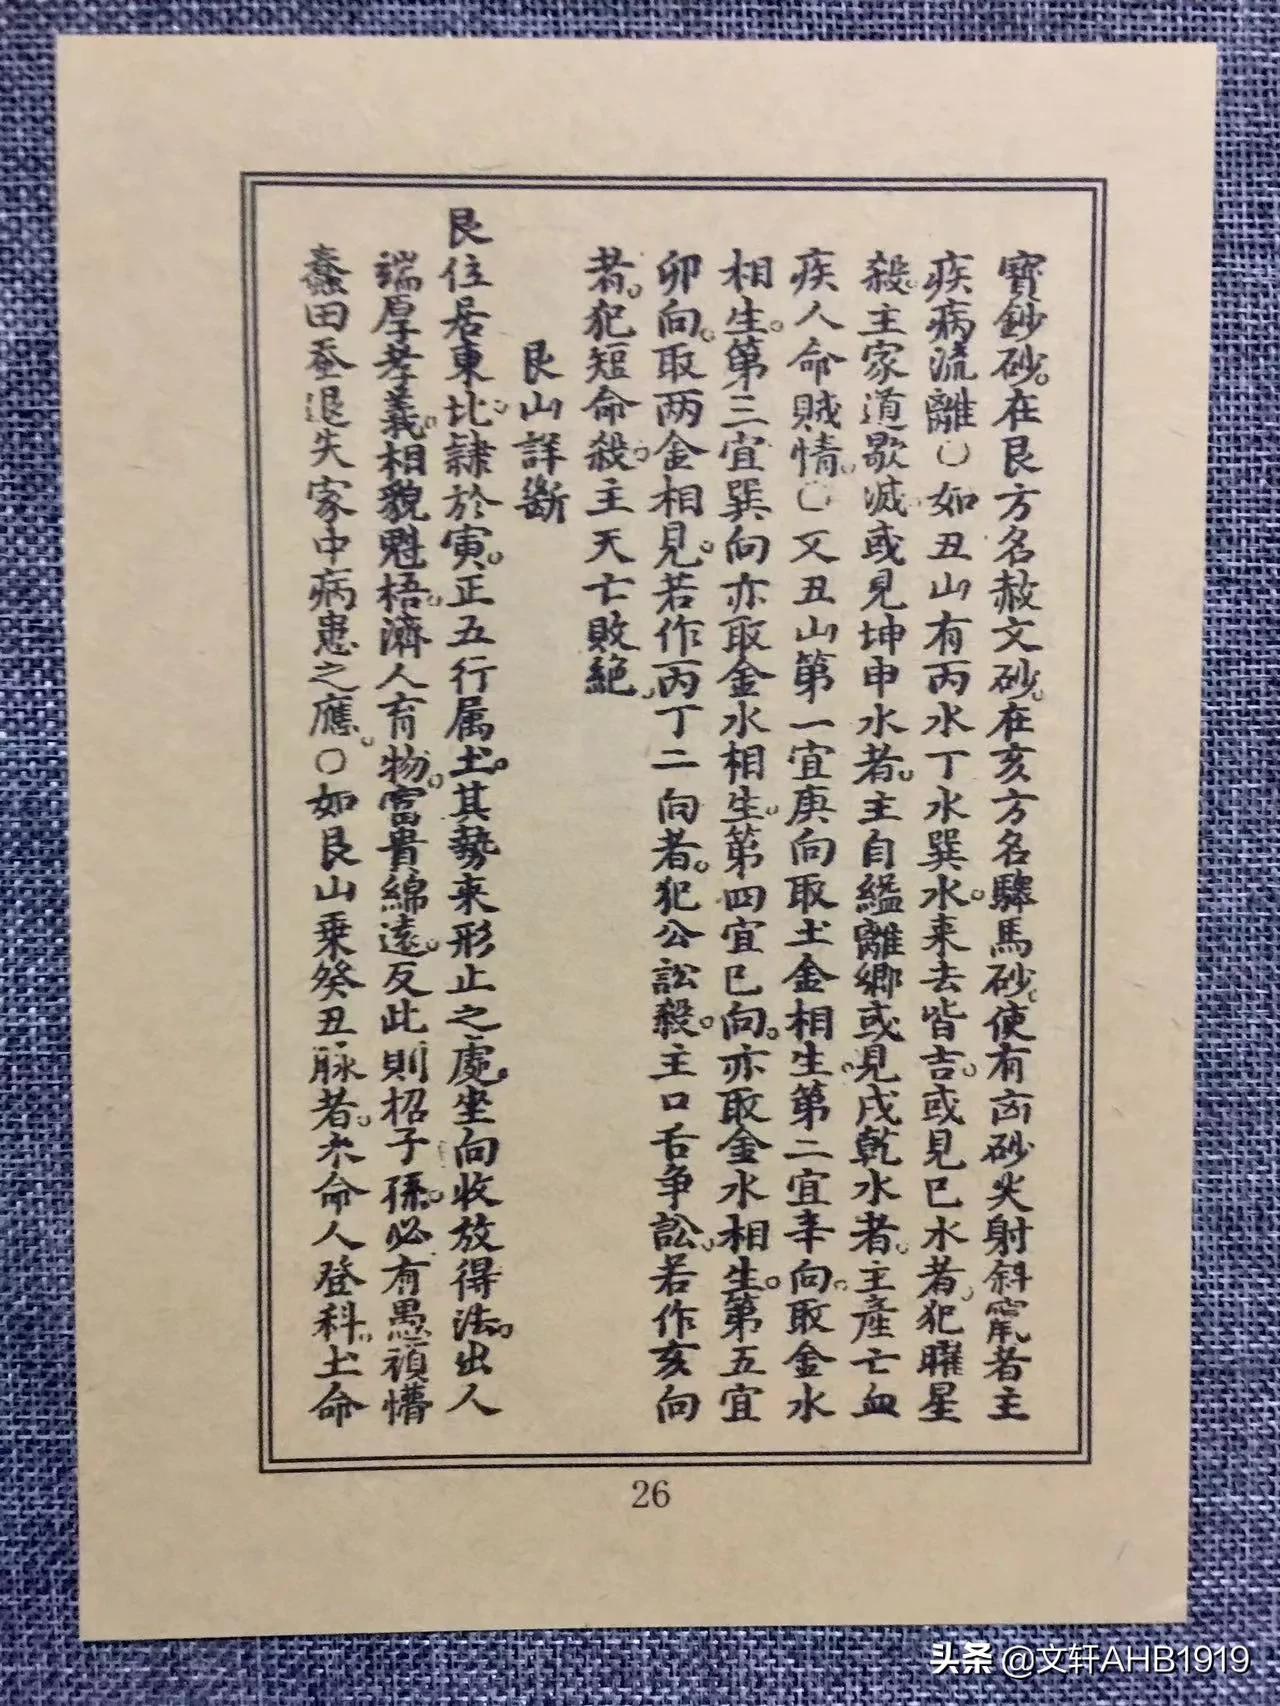 寶鈔砂。在艮方名赦文砂。在亥方名驛馬砂。使有凶砂尖射斜竄者主
疾病流離○如丑山有丙水丁水巽水。來去皆吉。或見巳水者。犯曜星
殺。主家道歇滅或見坤申水者。主自縊離鄉或見戌乾水者。主產亡血
疾人命賊情。○又丑山第一宜庚向取土金相生。第二宜辛向。取金水
相生。第三宜巽向亦取金水相生。第四宜巳向。亦取金水相生。第五宜
卯向。取两金相見。若作丙丁二向者。犯公訟殺。主口舌争訟。若作亥向
者。犯短命殺。主夭亡敗絕。
艮山詳斷
艮位居東北。隷於寅。正五行属土。其勢来形止之處。坐向收放得法。出人
端厚孝義。相貌魁梧。濟人育物。富貴綿遠。反此則招子孫。必有愚頑懵
蠢田蚕退失家中病患之應。○如艮山乗癸丑脉者。木命人登科。土命
26
头条 @文轩AHB1919